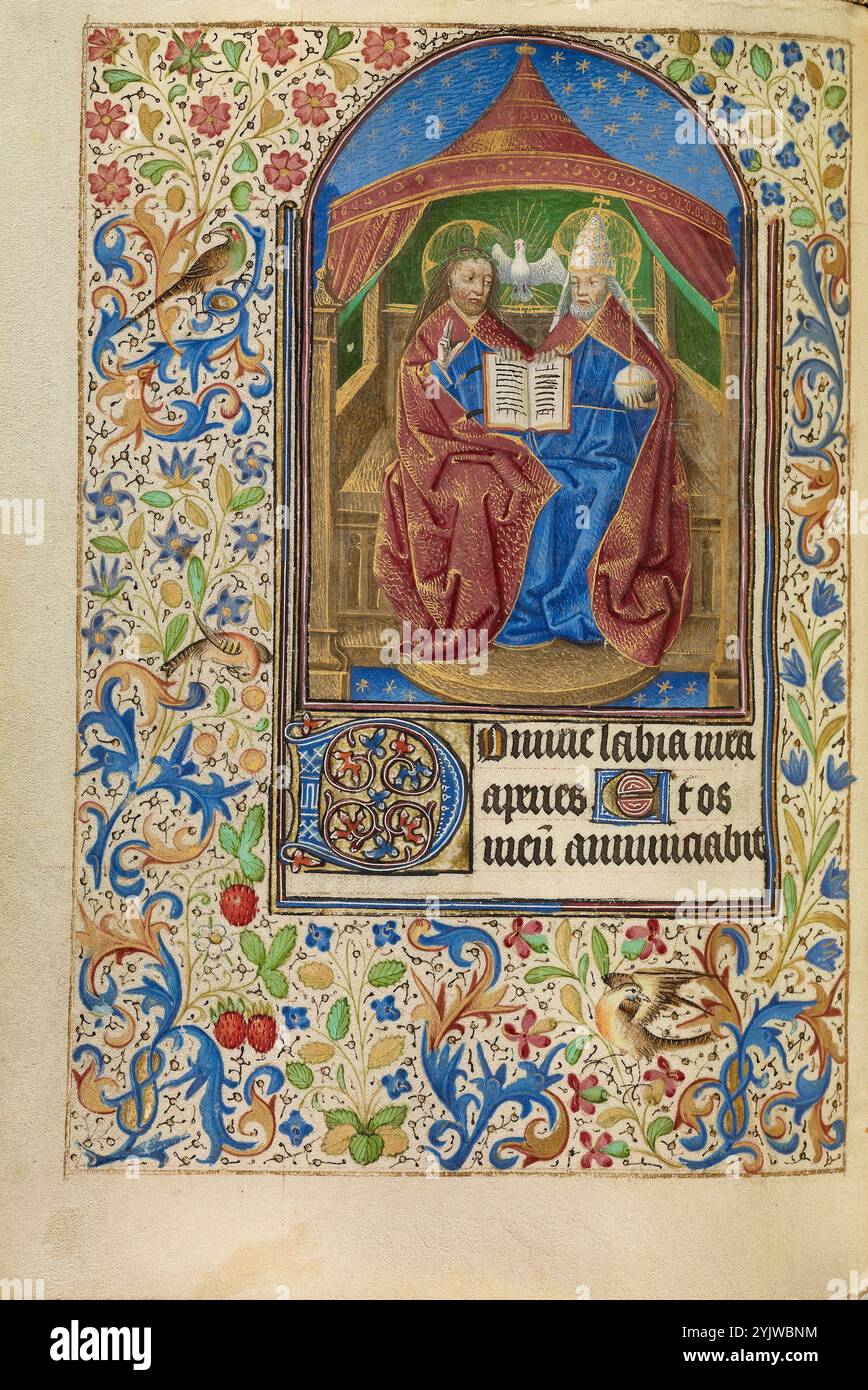 Domine labia mea
apries Et os
meū annunciabit
alamy
Image ID: 2YJWBNM
www.alamy.com